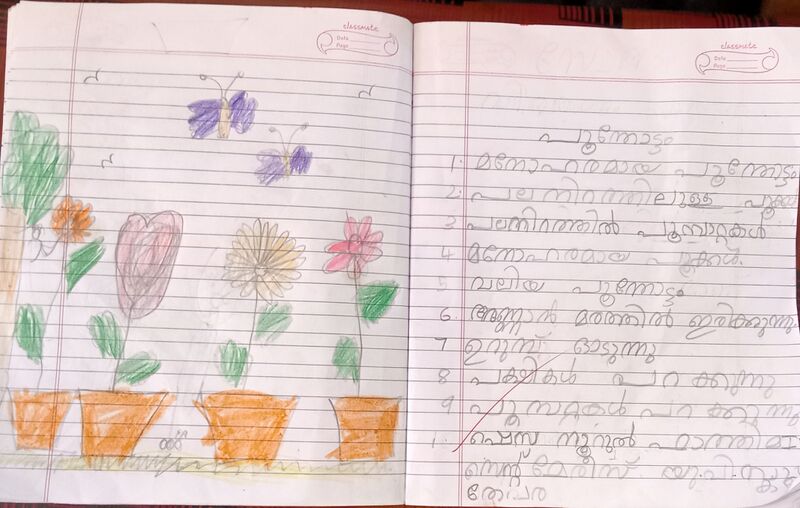 classmate
Date
Page
classmate
Date
Page
പൂന്തോട്ടം
1. മനോഹരമായ പൂന്തോട്ടം
2. പല നിറത്തിലുള്ള
3 പലനിറത്തിൽ പൂമ്പാറ്റകൾ
4 മനോഹരമായ പൂക്കൾ.
5 വലിയ പൂന്തോട്ടം
6. അണ്ണാൻ മരത്തിൽ ഇരിക്കുന്നു
7 ഉറുമ്പ് ഓടുന്നു
8 പക്ഷികൾ പറക്കുന്നു
9 പൂമ്പാറ്റകൾ പറക്കുന്നു
1. ഫാത്തിമ
സെന്റ് മേരീസ് യു.പി.സ്കൂൾ